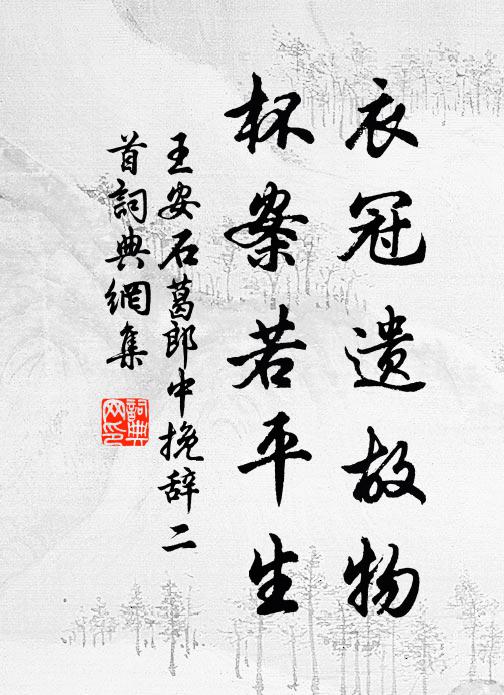 衣冠遗故物
杯案若平生
王安石葛郎中挽辞二
首詞典網集
詞典
网印